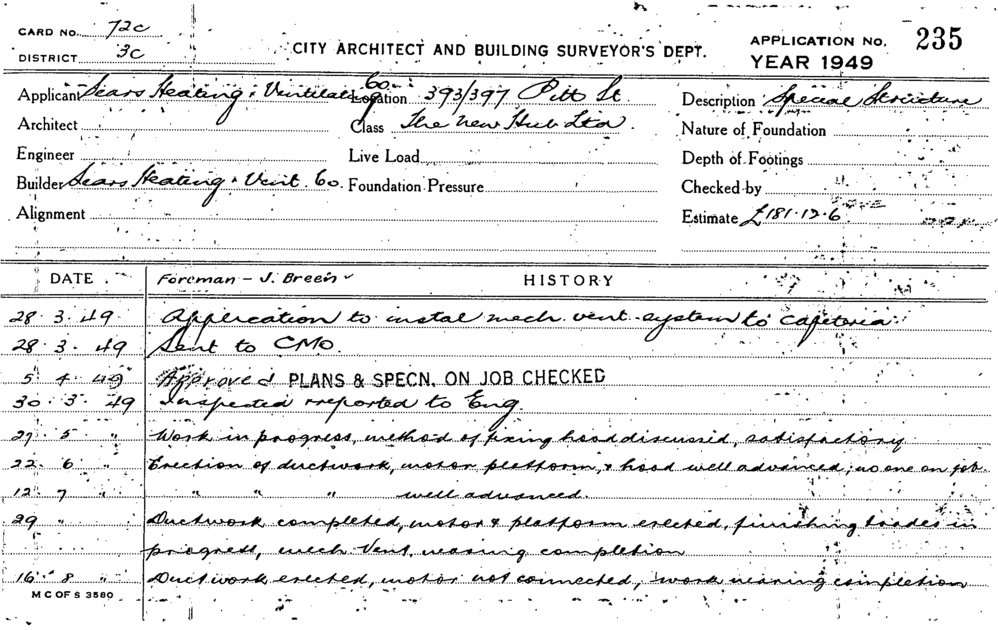 CARD No. 72c
DISTRICT 3c
CITY ARCHITECT AND BUILDING SURVEYOR'S DEPT.
APPLICATION No. 235
YEAR 1949
Applicant Sears Heating & Ventilating Co. Location 393/397 Pitt St. Description Special Structure
Architect Class The New Hub Ltd. Nature of Foundation
Engineer Live Load Depth of Footings
Builder Sears Heating & Vent. Co. Foundation Pressure Checked by
Alignment Estimate £181.12.6
DATE Foreman - J. Breen HISTORY
28. 3. 49 Application to instal mech. vent. system to cafeteria.
28. 3. 49 Sent to CMO.
5 4 49 Approved PLANS & SPECN. ON JOB CHECKED
30. 3. 49 Inspected & reported to Eng.
27. 5 " Work in progress, method of fixing hood discussed, satisfactory
22. 6 " Erection of ductwork, motor platform, & hood well advanced, no one on job.
12. 7 " " " " well advanced.
29 " Ductwork completed, motor & platform erected, finishing trades in
progress, mech Vent. nearing completion
16. 8 " Ductwork erected, motor not connected, work nearing completion
M C OF S 3580